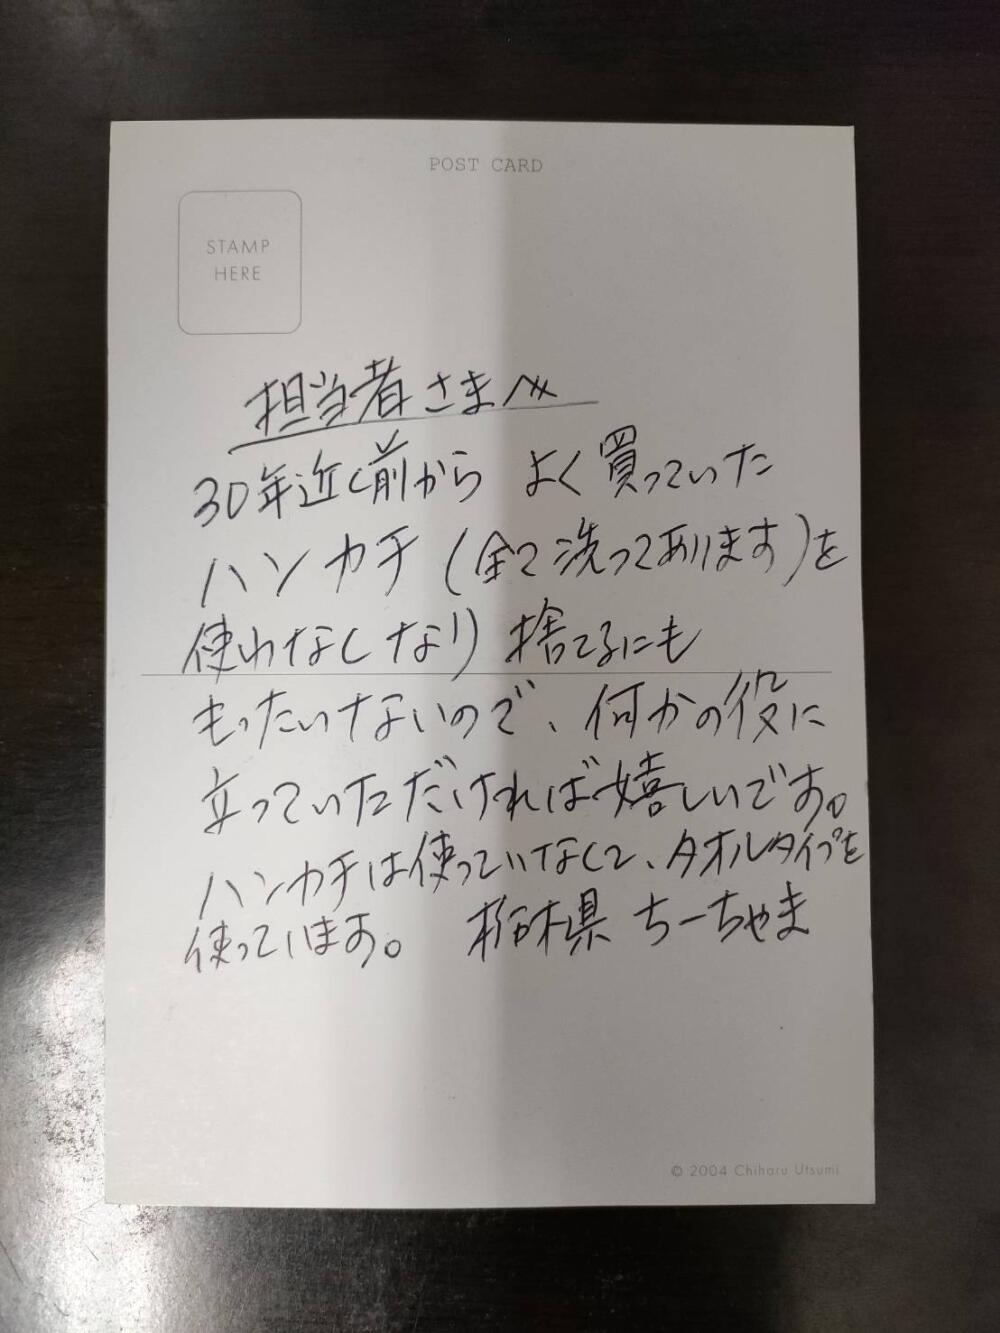 POST CARD
STAMP
HERE
担当者さまへ
30年近く前から よく買っていた
ハンカチ(全て洗ってあります)を
使わなくなり 捨てるにも
もったいないので、何かの役に
立っていただければ嬉しいです。
ハンカチは使っていなくて、タオルタイプを
使っています。 栃木県 ちーちゃま
© 2004 Chiharu Utsumi